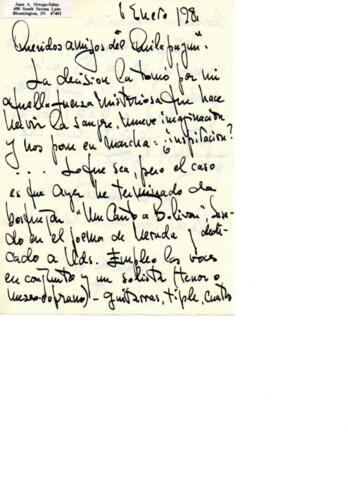 Juan A. Orrego-Salas
490 South Serena Lane
Bloomington, IN 47401
6 Enero, 198
Queridos amigos del "Quilapayún".
La decisión la tomó por mi
aquella fuerza misteriosa que hace
hervir la sangre, mueve imaginación
y nos pone en marcha: ¿inspiración?
.... Lo que sea, pero el caso
es que ayer he terminado de
"Un Canto a Bolívar", basa-
do en el poema de Neruda y dedi-
cado a Uds. Empleo las voces
en conjunto y un solista (tenor o
mezzosoprano) - guitarras, tiple, cuatro